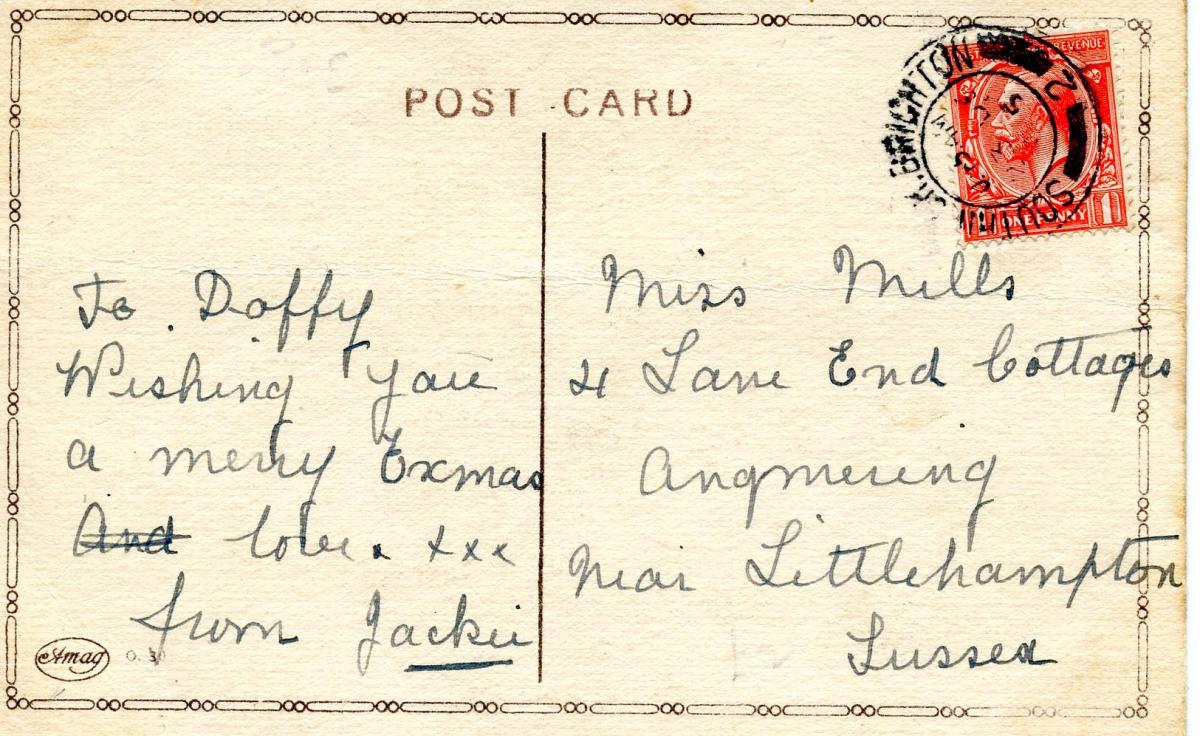 POST CARD
REVENUE
ONE PENNY
1
BRIGHTON
2
To Doffy
Wishing you
a merry Exmas
And love. xxx
from Jackie
Amag
O. 30
Miss Mills
4 Lane End Cottages
Angmering
Near Littlehampton
Sussex